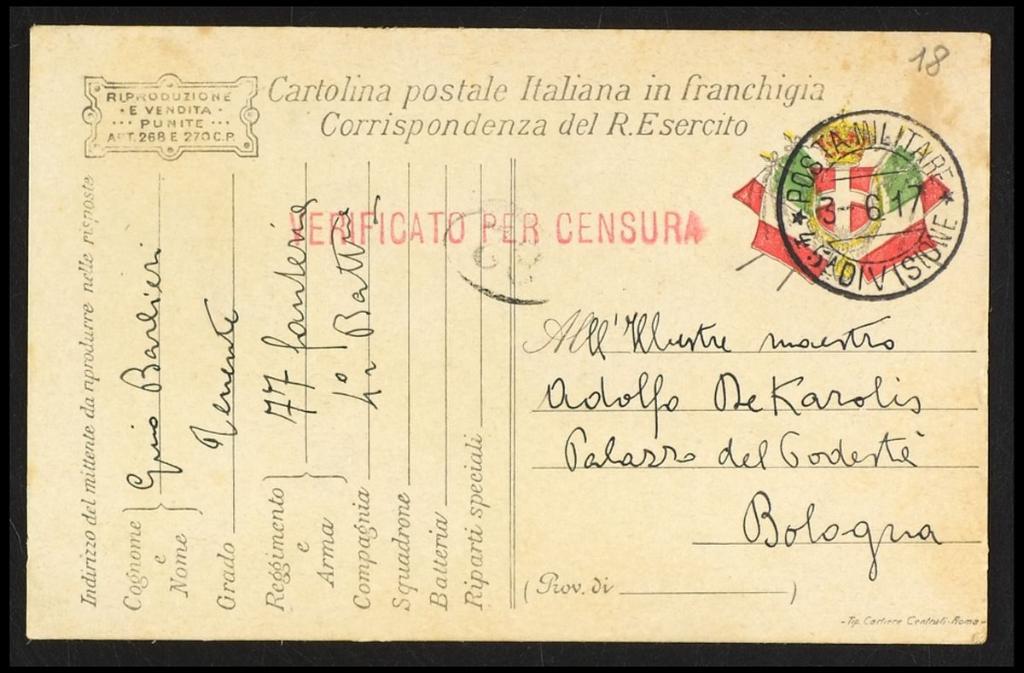 18
RIPRODUZIONE
E VENDITA
PUNITE
ART. 268 E 270 C.P.
Cartolina postale Italiana in franchigia
Corrispondenza del R. Esercito
VERIFICATO PER CENSURA
POSTA MILITARE
3-6 17
45A DIVISIONE
Indirizzo del mittente da riprodurre nelle risposte
Cognome e Nome Gino Barbieri
Grado Tenente
Reggimento e Arma 77 fanteria
Compagnia 4° Battne
Squadrone
Batteria
Riparti speciali
All'Illustre maestro
Adolfo De Karolis
Palazzo del Podestà
Bologna
(Prov. di )
-Tip. Cartiere Centrali-Roma-